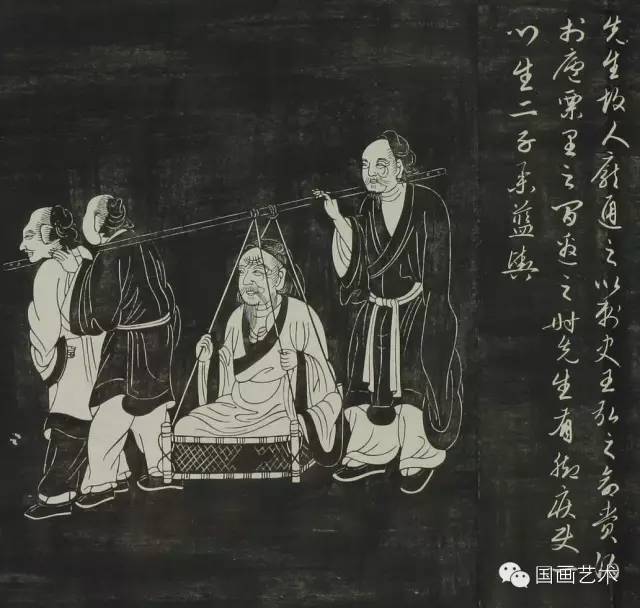 先生故人龐通之以刺史王弘之命賫酒
於廬栗里之間邀之時先生有脚疾使一
门生二子舁藍輿
国画艺术